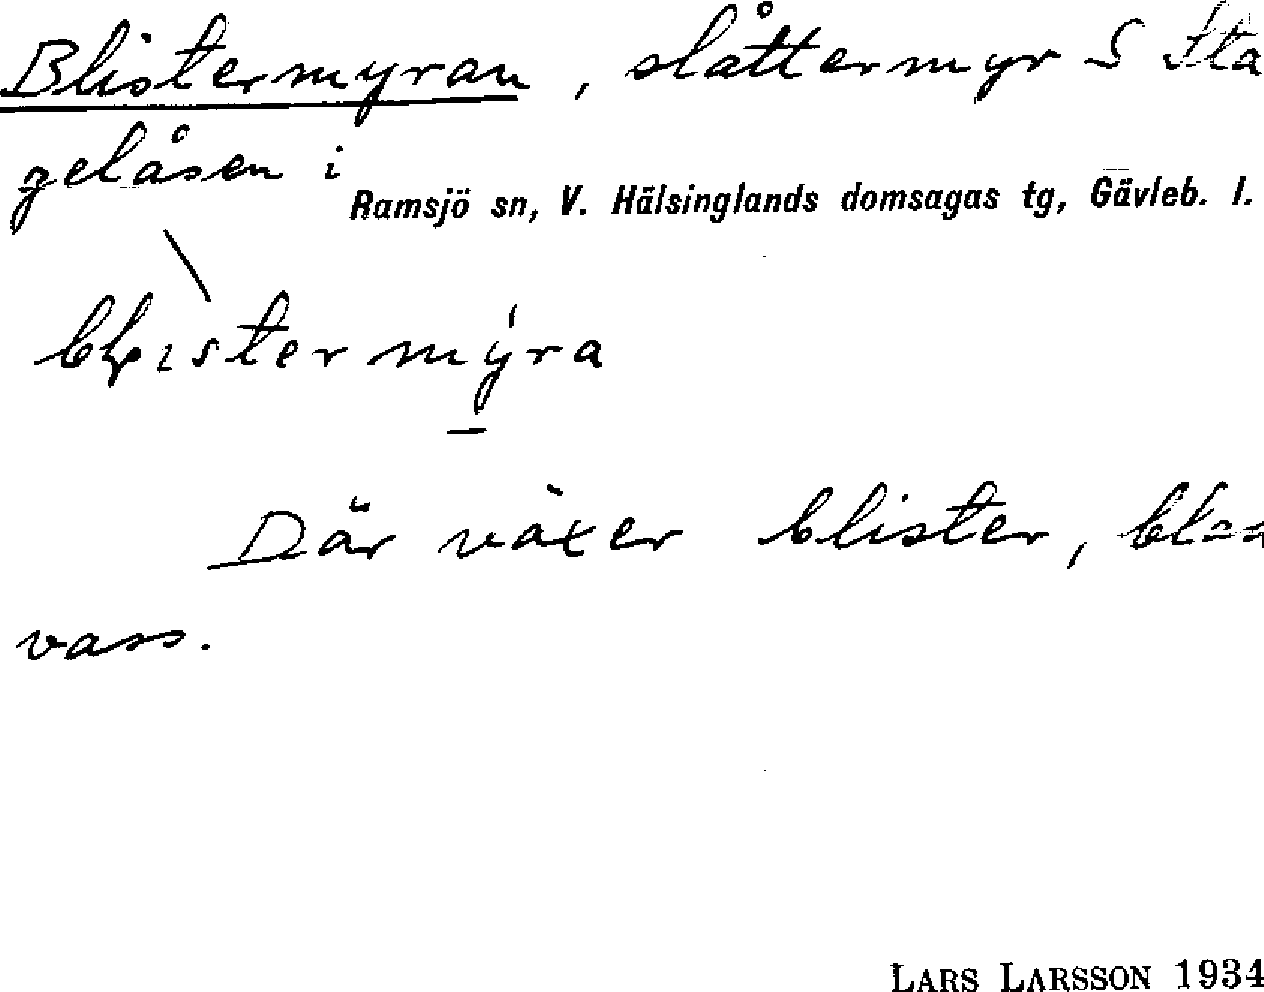 Blistermyran, slåttermyr S Sta
gelåsen i
Ramsjö sn, V. Hälsinglands domsagas tg, Gävleb. l.
Där växer blister, blad
vass.
LARS LARSSON 1934